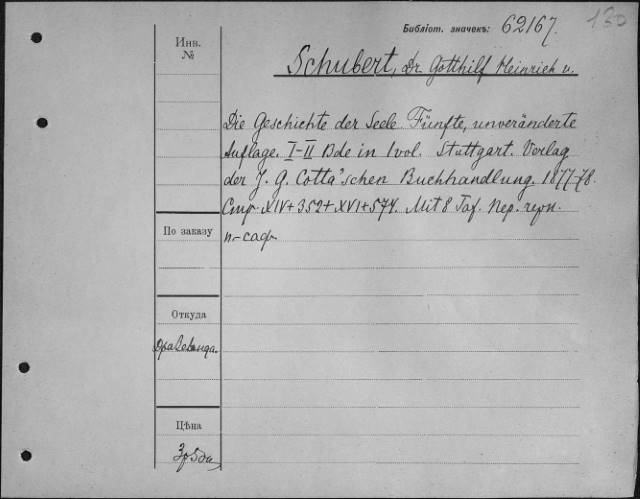 130
Библіот. значекъ: 62167.
Инв.
№
Schubert, Dr. Gotthilf Heinrich v.
Die Geschichte der Seele. Fünfte, unveränderte
Auflage. I-II Bde in 1 vol. Stuttgart. Verlag
der J. G. Cotta'schen Buchhandlung. 1877-78.
Стр. XIV+352+XVI+574. Mit 8 Taf. Пер. черн.
п.-саф.
По заказу
Откуда
Цѣна